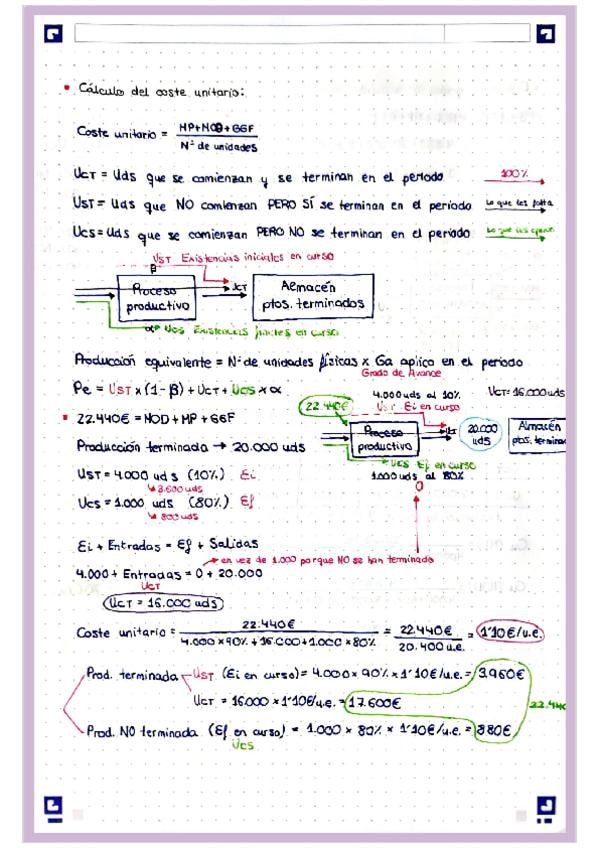 Cálculo del coste unitario:
Coste unitario = MP+MOD+GGF / Nº de unidades
UCT = Uds que se comienzan y se terminan en el periodo 100%
UST = Uds que NO comienzan PERO SÍ se terminan en el periodo Lo que les falta
UCS = Uds que se comienzan PERO NO se terminan en el periodo Lo que les
UST Existencias iniciales en curso
β
Proceso productivo
UCT
Almacén ptos. terminados
α UCS Existencias finales en curso
Producción equivalente = Nº de unidades físicas x Ga aplico en el periodo
Grado de Avance
Pe = UST x (1 - β) + UCT + UCS x α
4.000 uds al 10%
UCT = 16.000 uds
22.440€
UST Ei en curso
22.440€ = MOD + MP + GGF
Proceso productivo
UCT
20.000 uds
Almacén ptos. termina
Producción terminada → 20.000 uds
UCS Ef en curso
UST = 4.000 uds (10%) Ei
1.000 uds al 80%
↳ 3.600 uds
0
UCS = 1.000 uds (80%) Ef
↳ 800 uds
Ei + Entradas = Ef + Salidas
en vez de 1.000 porque NO se han terminado
4.000 + Entradas = 0 + 20.000
UCT
UCT = 16.000 uds
Coste unitario = 22.440€ / 4.000 x 90% + 16.000 + 1.000 x 80% = 22.440€ / 20.400 u.e. = 1'10€/u.e.
Prod. terminada UST (Ei en curso) = 4.000 x 90% x 1'10€/u.e. = 3.960€
UCT = 16.000 x 1'10€/u.e. = 17.600€
22.440
Prod. NO terminada (Ef en curso) = 1.000 x 80% x 1'10€/u.e. = 880€
UCS